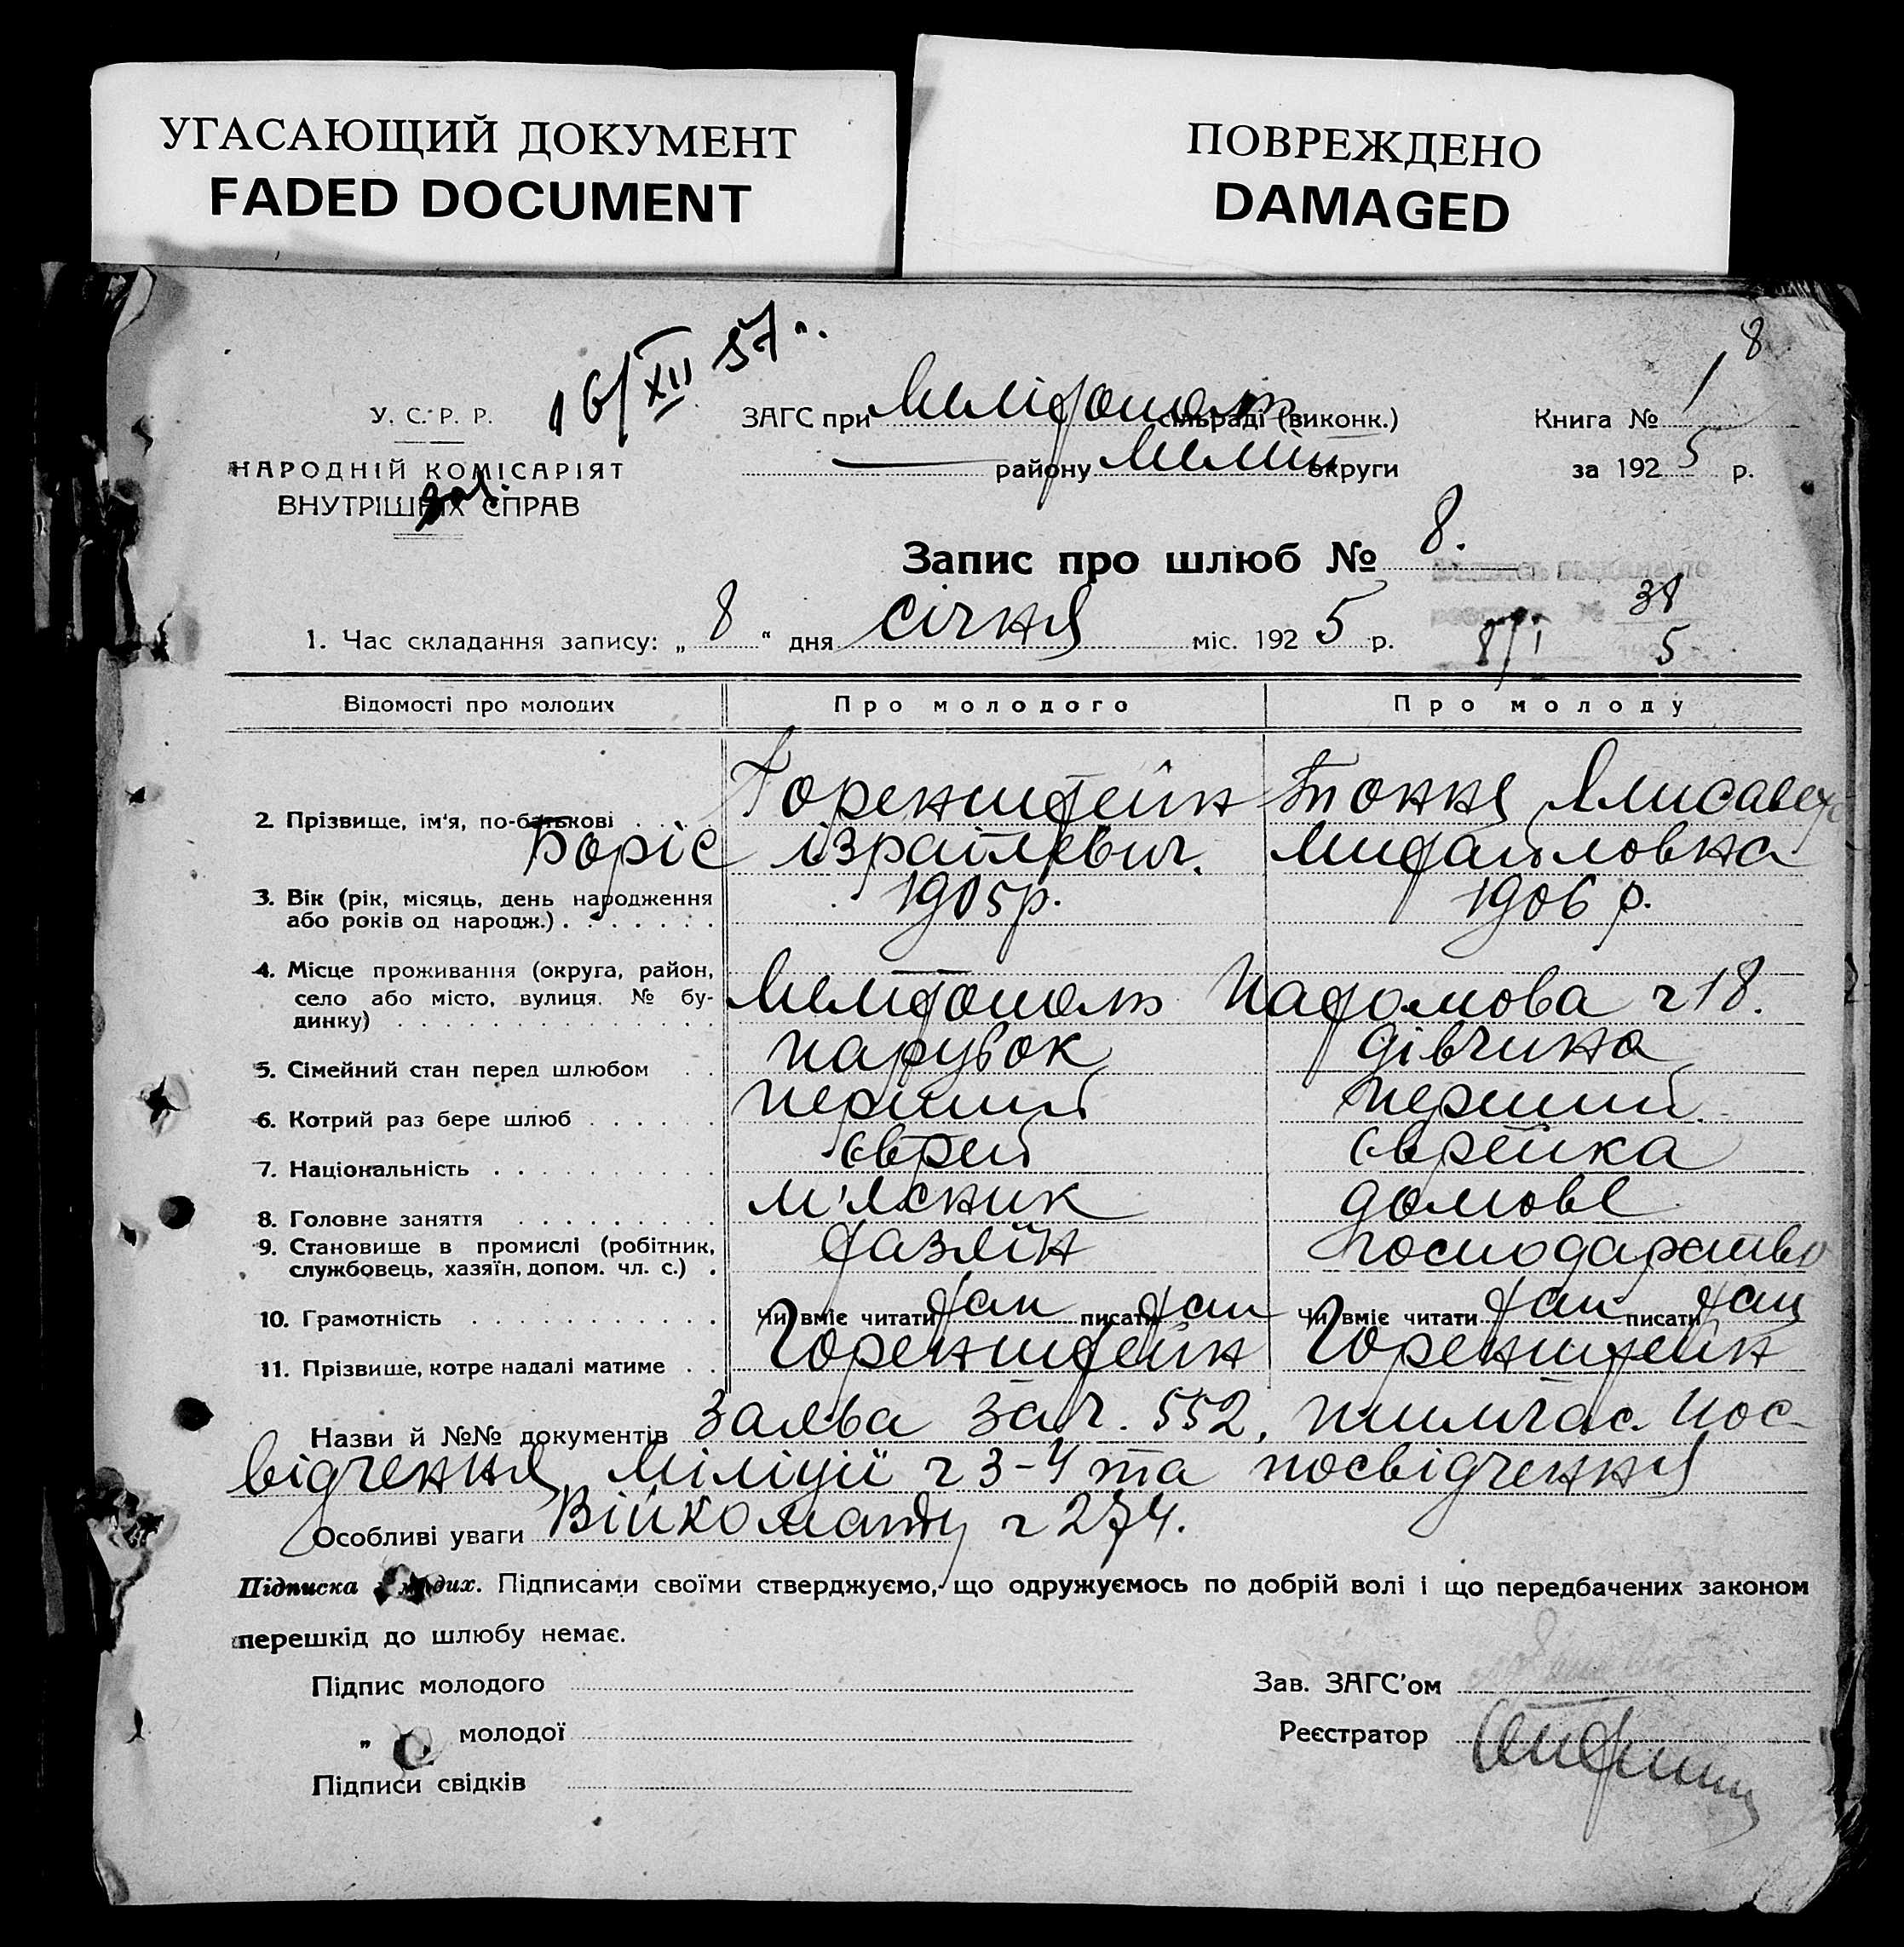 УГАСАЮЩИЙ ДОКУМЕНТ
FADED DOCUMENT
ПОВРЕЖДЕНО
DAMAGED
8
16/XII 57 г.
У. С. Р. Р.
НАРОДНІЙ КОМІСАРІЯТ
ВНУТРІШНІХ СПРАВ
ЗАГС при Мелітополь сільраді (виконк.)
району Меліт округи
Книга № 1
за 1925 р.
Запис про шлюб № 8.
1. Час складання запису: „ 8 “ дня січня міс. 1925 р.
8/I 38
5
Відомості про молодих Про молодого Про молоду
2. Прізвище, ім'я, по-батькові Горенштейн Борiс ізраїлевич. Тоння Ялисавета Михайловна
3. Вік (рік, місяць, день народження
або років од народж.) 1905р. 1906 р.
4. Місце проживання (округа, район,
село або місто, вулиця. № бу-
динку) Мелітополь ч 18.
5. Сімейний стан перед шлюбом парубок дівчина
6. Котрий раз бере шлюб перший перший
7. Національність єврей єврейка
8. Головне заняття м'ясник домове
9. Становище в промислі (робітник,
службовець, хазяїн, допом. чл. с.) хазяїн господарство
10. Грамотність Чи вміє читати так писати так Чи вміє читати так писати так
11. Прізвище, котре надалі матиме Горенштейн Горенштейн
Назви й №№ документів Заява за ч. 552, тимчас. пос-
відчення міліції ч 3-4 та посвідчення
Особливі уваги Війкомату ч 274.
Підписка молодих. Підписами своїми стверджуємо, що одружуємось по добрій волі і що передбачених законом
перешкід до шлюбу немає.
Підпис молодого
Зав. ЗАГС'ом
„ молодої
Реєстратор
Підписи свідків